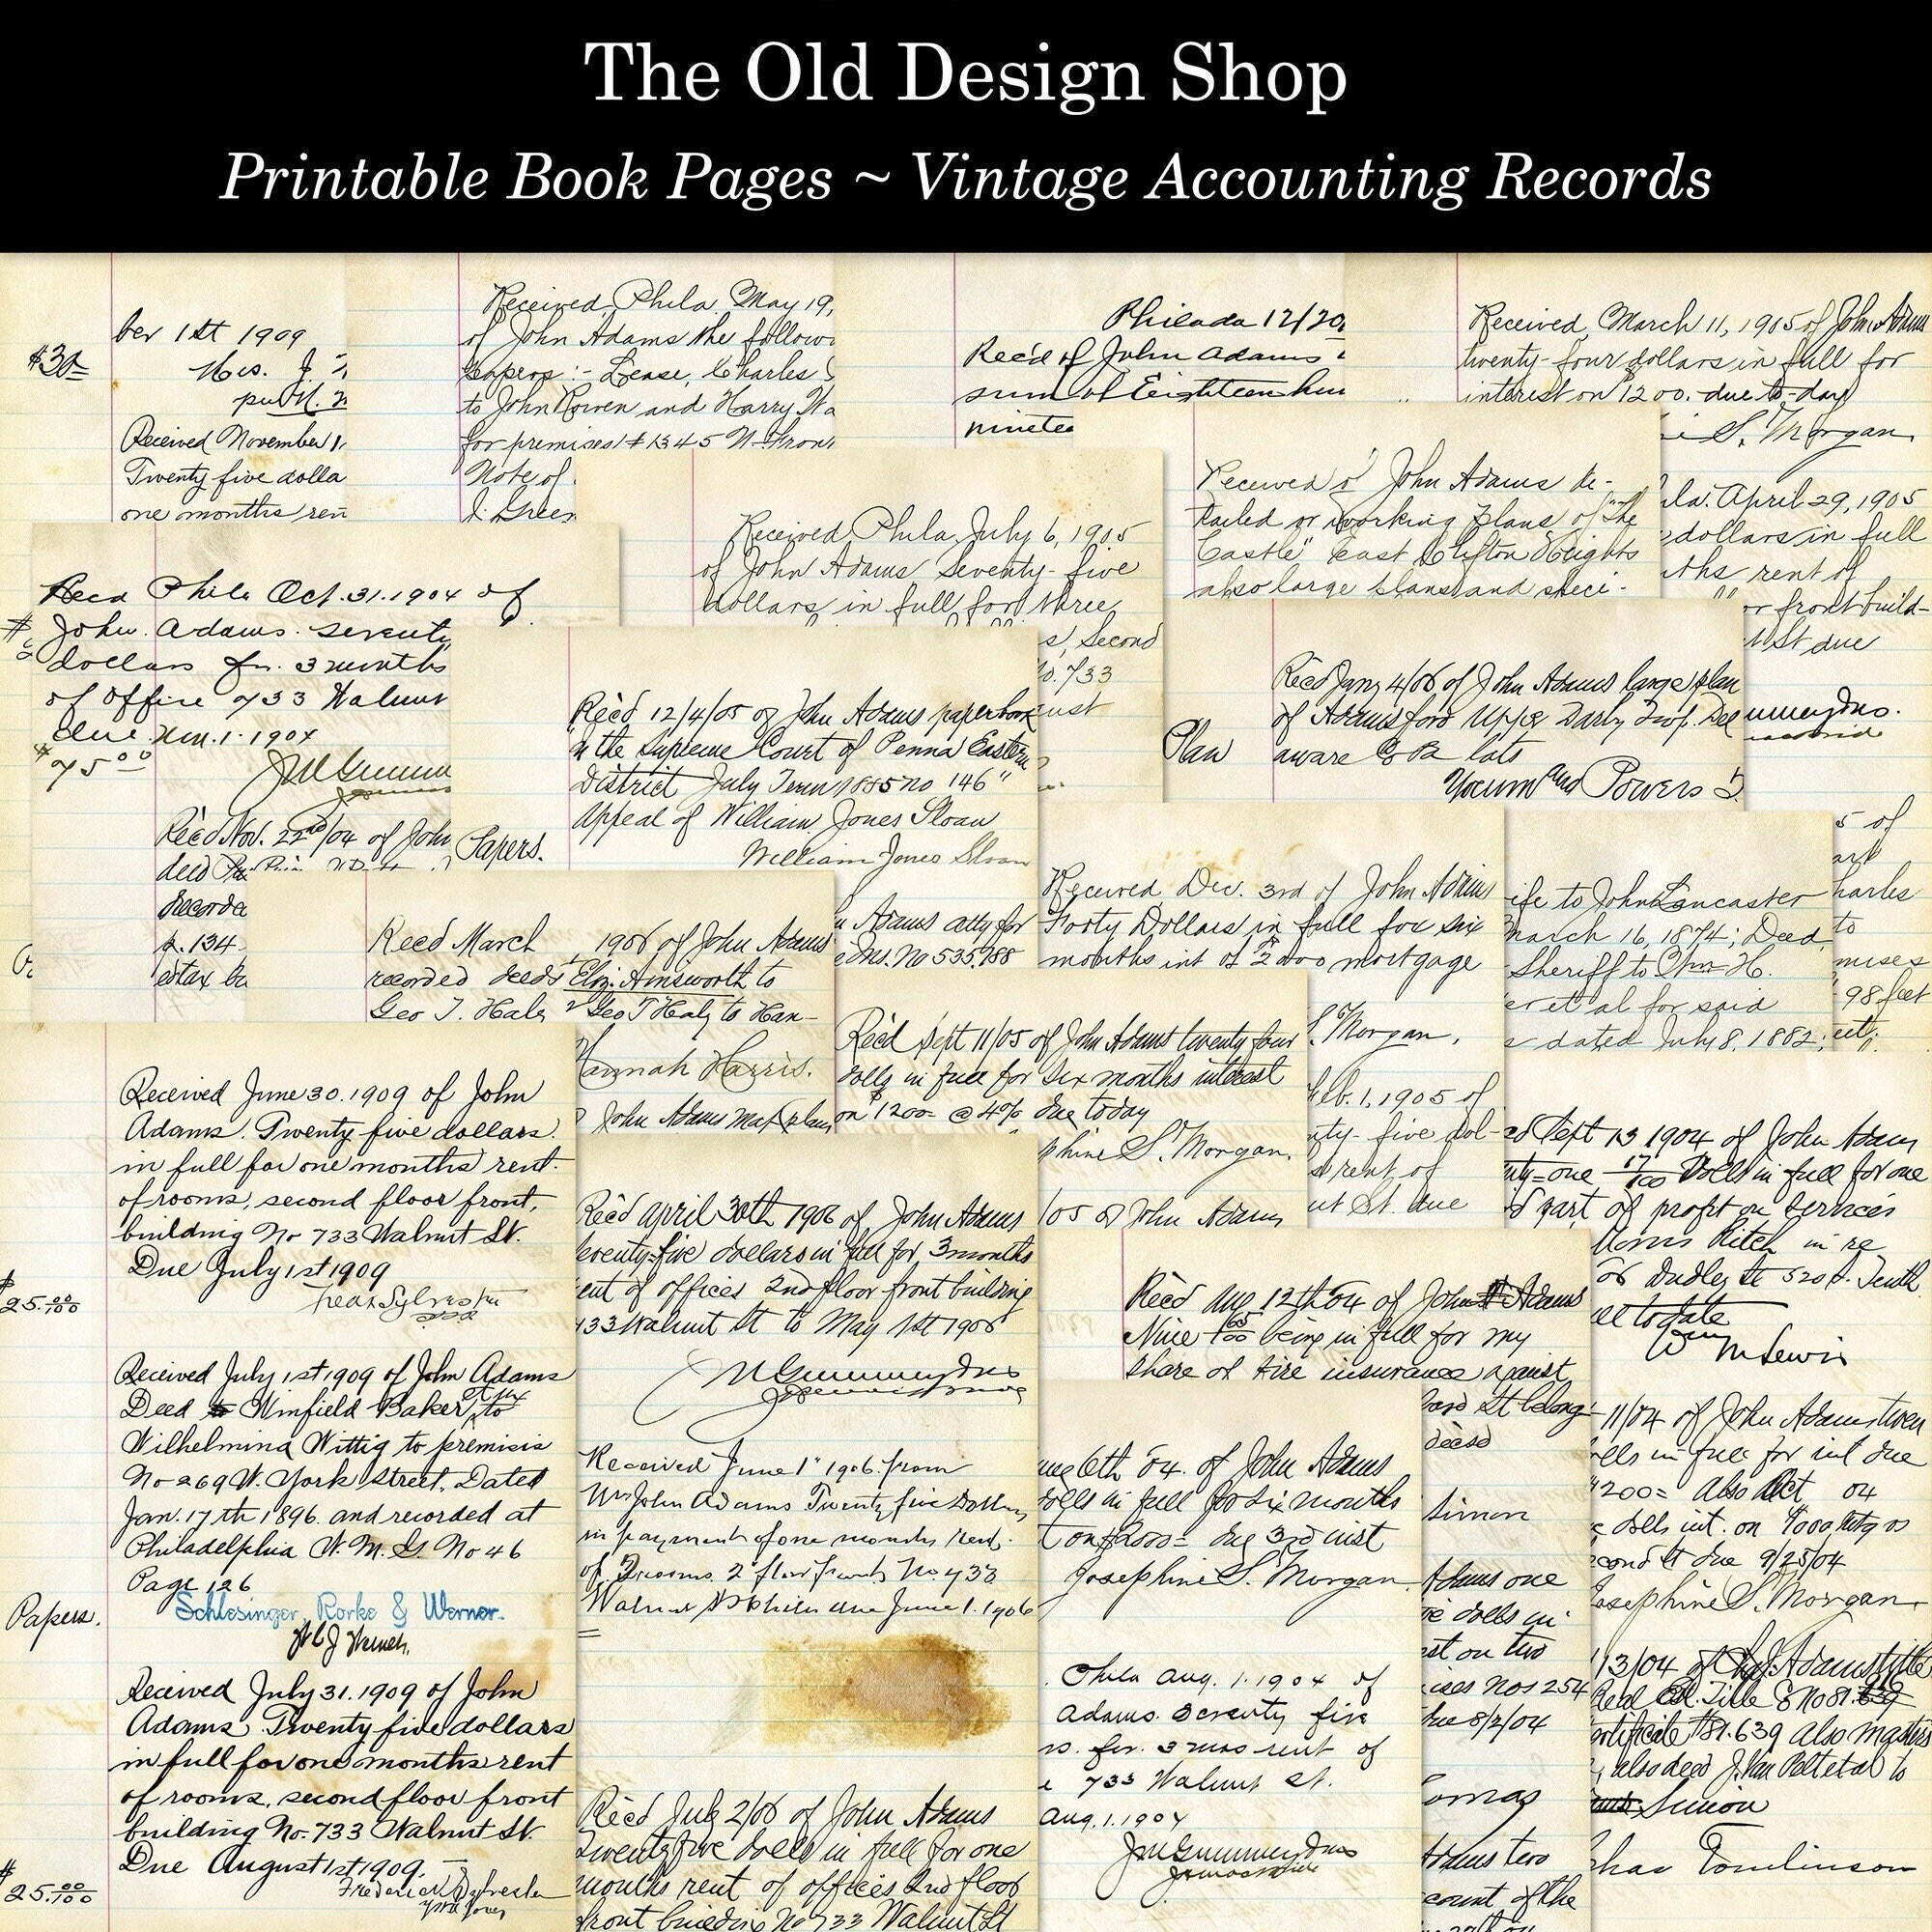 The Old Design Shop
Printable Book Pages ~ Vintage Accounting Records
ber 1st 1909
$30
Received November 1,
Twenty five dolla
one months ren
Received Phila. May 19,
of John Adams the follow
papers :- Lease, Charles
to John Rowen and Harry Wa
for premises # 1345 N. Front
Note of
J. Green
Philada 12/20
Rec'd of John Adams
sum of Eighteen hun
ninetee
Received March 11, 1905 of John Adams
twenty-four dollars in full for
interest on 1200. due to-day
S. Morgan
la. April 29, 1905
dollars in full
ths rent of
or front build-
St due
Received of John Adams de-
tailed or working plans of "The
Castle" East Clifton Heights
also large plans and speci-
Received Phila. July 6, 1905
of John Adams Seventy-five
dollars in full for three
s, Second
o. 733
Recd Phila Oct. 31. 1904 of
John Adams. Seventy
dollars for 3 months
of Office 733 Walnut
due Nov. 1. 1904
$75 00
Rec'd Nov. 22nd/04 of John
deed
Recorde
p. 134
Papers.
Rec'd 12/4/05 of John Adams paperbook
in the Supreme Court of Penna Eastern
District July Term 1885 no 146"
Appeal of William Jones Sloan
William Jones Sloan
Adams atty for
Ins. No 535,788
Plan
Rec'd Jany 4/06 of John Adams large plan
of Adamsford Upper Darby Twp. Del
aware Co Pa lots
Yocum and Powers
Received Dec. 3rd of John Adams
Forty Dollars in full for six
months int of 2000 mortgage
S. Morgan.
Feb. 1, 1905 of
ty-five dol-
s rent of
ut St. due
ife to John Lancaster
March 16, 1874; Deed
Sheriff to Chas H.
er et al for said
dated July 8, 1882;
5 of
ark
harles
to
mises
98 feet
Recd March 1906 of John Adams
recorded deeds Eliz. Ainsworth to
Geo T. Haly & Geo T Healy to Han-
Hannah Harris.
John Adams map plan
Rec'd Sept 11/05 of John Adams twenty four
dolls in full for six months interest
on 1200 @ 4% due today
phine S. Morgan.
/05 of John Adams
Received June 30. 1909 of John
Adams. Twenty five dollars.
in full for one months rent.
of rooms, second floor front,
building No 733 Walnut St.
Due July 1st 1909
$25.00/100
Received July 1st 1909 of John Adams
Deed Winfield Baker et ux to
Wilhelmina Wittig to premisis
No 269 W. York Street. Dated
Jan. 17th 1896. and recorded at
Philadelphia W. M. G. No 46
Page 126
Papers.
Schlesinger, Rorke & Werner.
Received July 31. 1909 of John
Adams. Twenty five dollars
in full for one months rent
of rooms, second floor front
building No. 733 Walnut St.
Due August 1st 1909.
$25.00/100
Rec'd April 30th 1906 of John Adams
seventy-five dollars in full for 3 months
rent of offices 2nd floor front building
733 Walnut St to May 1st 1906
Received June 1" 1906. from
Mr John Adams Twenty five Dollars
in payment of one months Rent.
of 2 rooms. 2d floor front, No 733
Walnut St Phila due June 1. 1906
Rec'd July 2/06 of John Adams
Twenty five dolls in full for one
months rent of offices 2nd floor
front building No 733 Walnut St
Rec'd Aug 12th 04 of John Adams
Nine 65/100 being in full for my
share of fire insurance against
St belong
deces'd
Simon
Adams one
dolls in
est on two
ises Nos 254
due 8/2/04
omas
Adams two
count of the
6th 04. of John Adams
dolls in full for six months
t on $2000= due 3rd inst
Josephine S. Morgan.
Phila Aug. 1. 1904 of
Adams. Seventy five
rs. for. 3 mos rent of
733 Walnut St.
Aug. 1. 1904
ed Sept 13 1904 of John Adams
nty-one 17/100 Dolls in full for one
d part of profit on services
Morris Ritch in re
of Dudley St
all to date
Wm M Lewis
11/04 of John Adams twen
olls in full for int due
$1200= Also Oct 04
dolls int. on 1000 mtg
econd St due 9/25/04
Josephine S. Morgan
13/04 of Jno. Adams title
Real Est. Title
ertificate #81.639 also masters
, also deed J. Van Pelt et al to
Simon
Chas Tomlinson